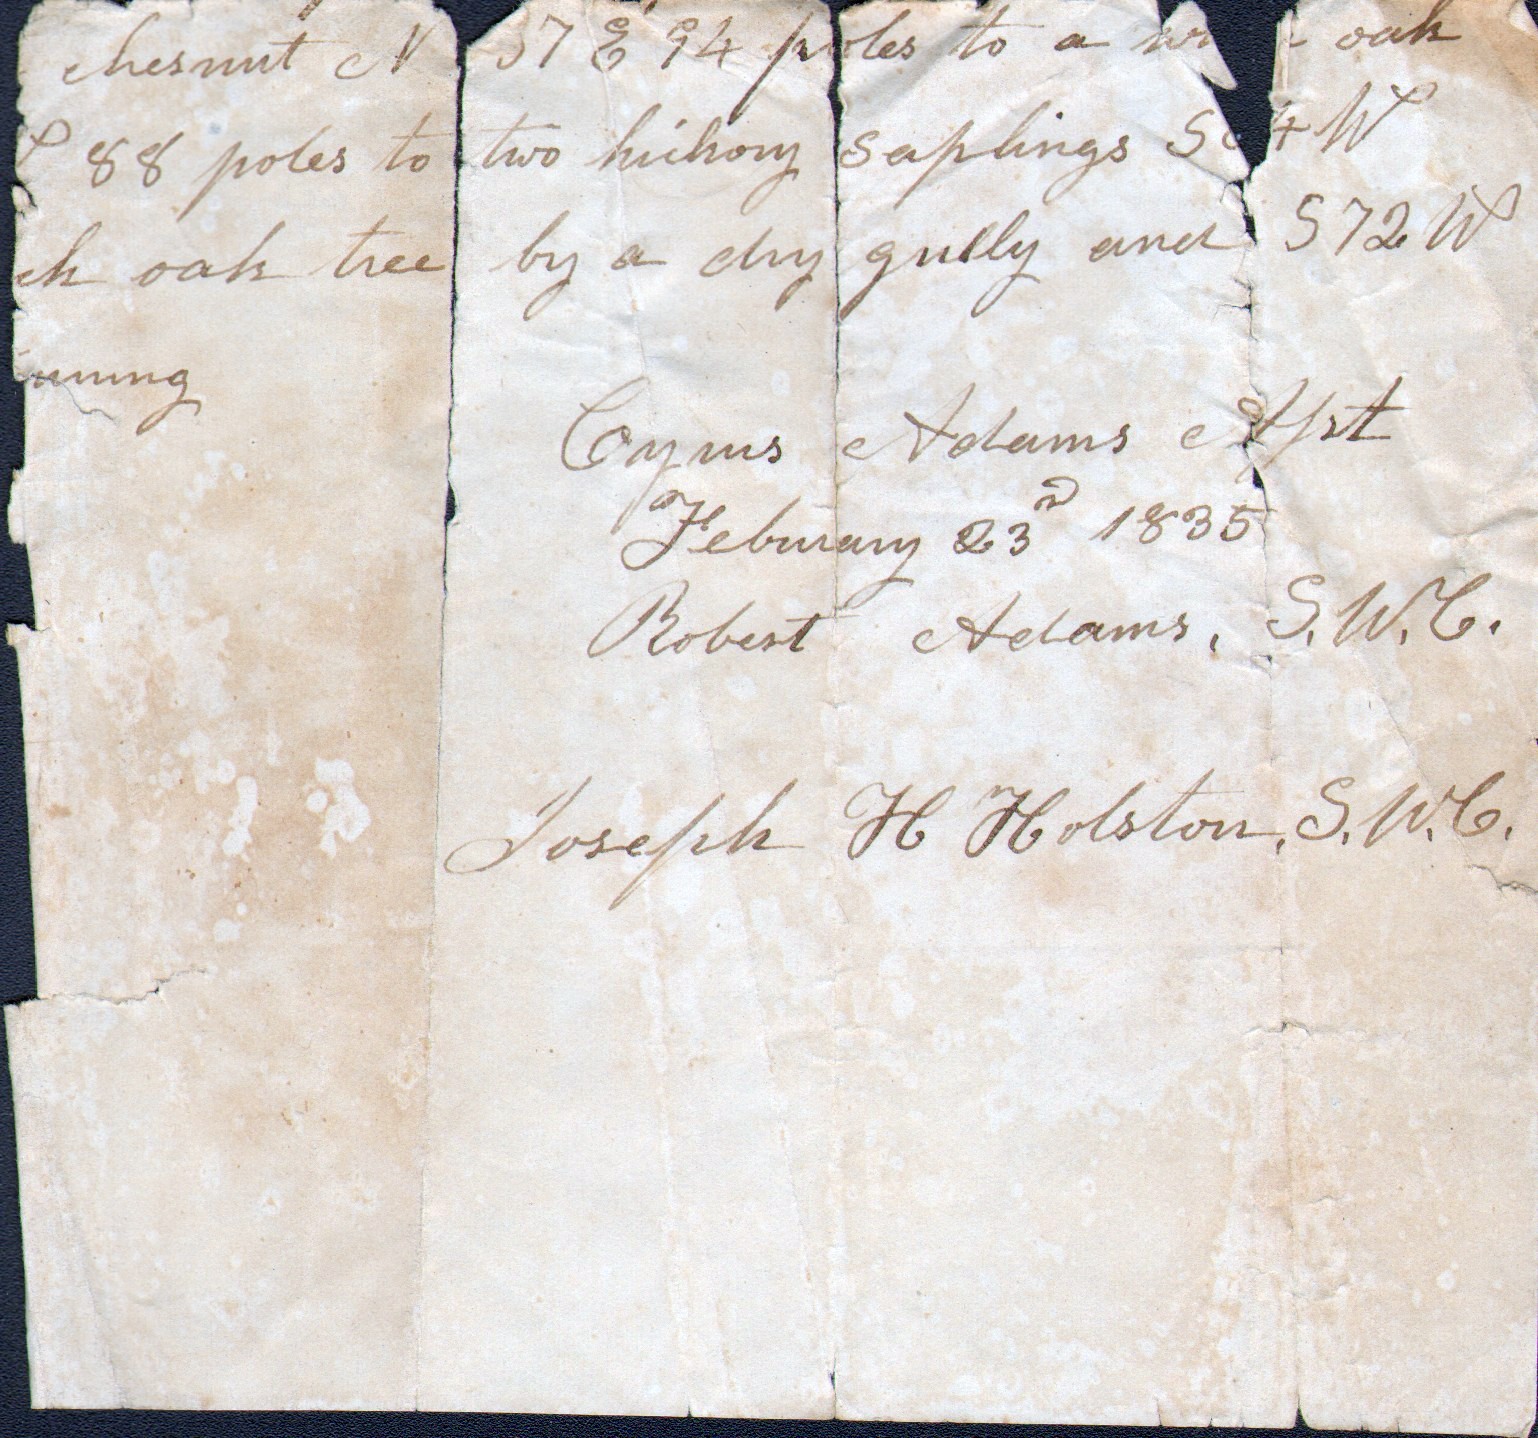 chesnut N 37 E 94 poles to a oak
88 poles to two hickory saplings S 4 W
ck oak tree by a dry gully and S 72 W
nning
Cyrus Adams Asst
February 23d 1835
Robert Adams, S.W.C.
Joseph H Holston, S.W.C.